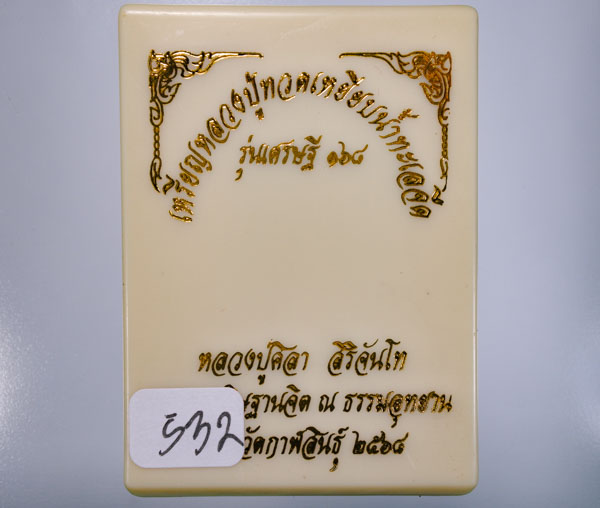 เหรียญหลวงปู่ทวดเหยียบน้ำทะเลจืด
รุ่นเศรษฐี ๑๖๘
หลวงปู่ศิลา สิริจันโท
ษฐานจิต ณ ธรรมอุทยาน
วัดกาฬสินธุ์ ๒๕๖๘
532